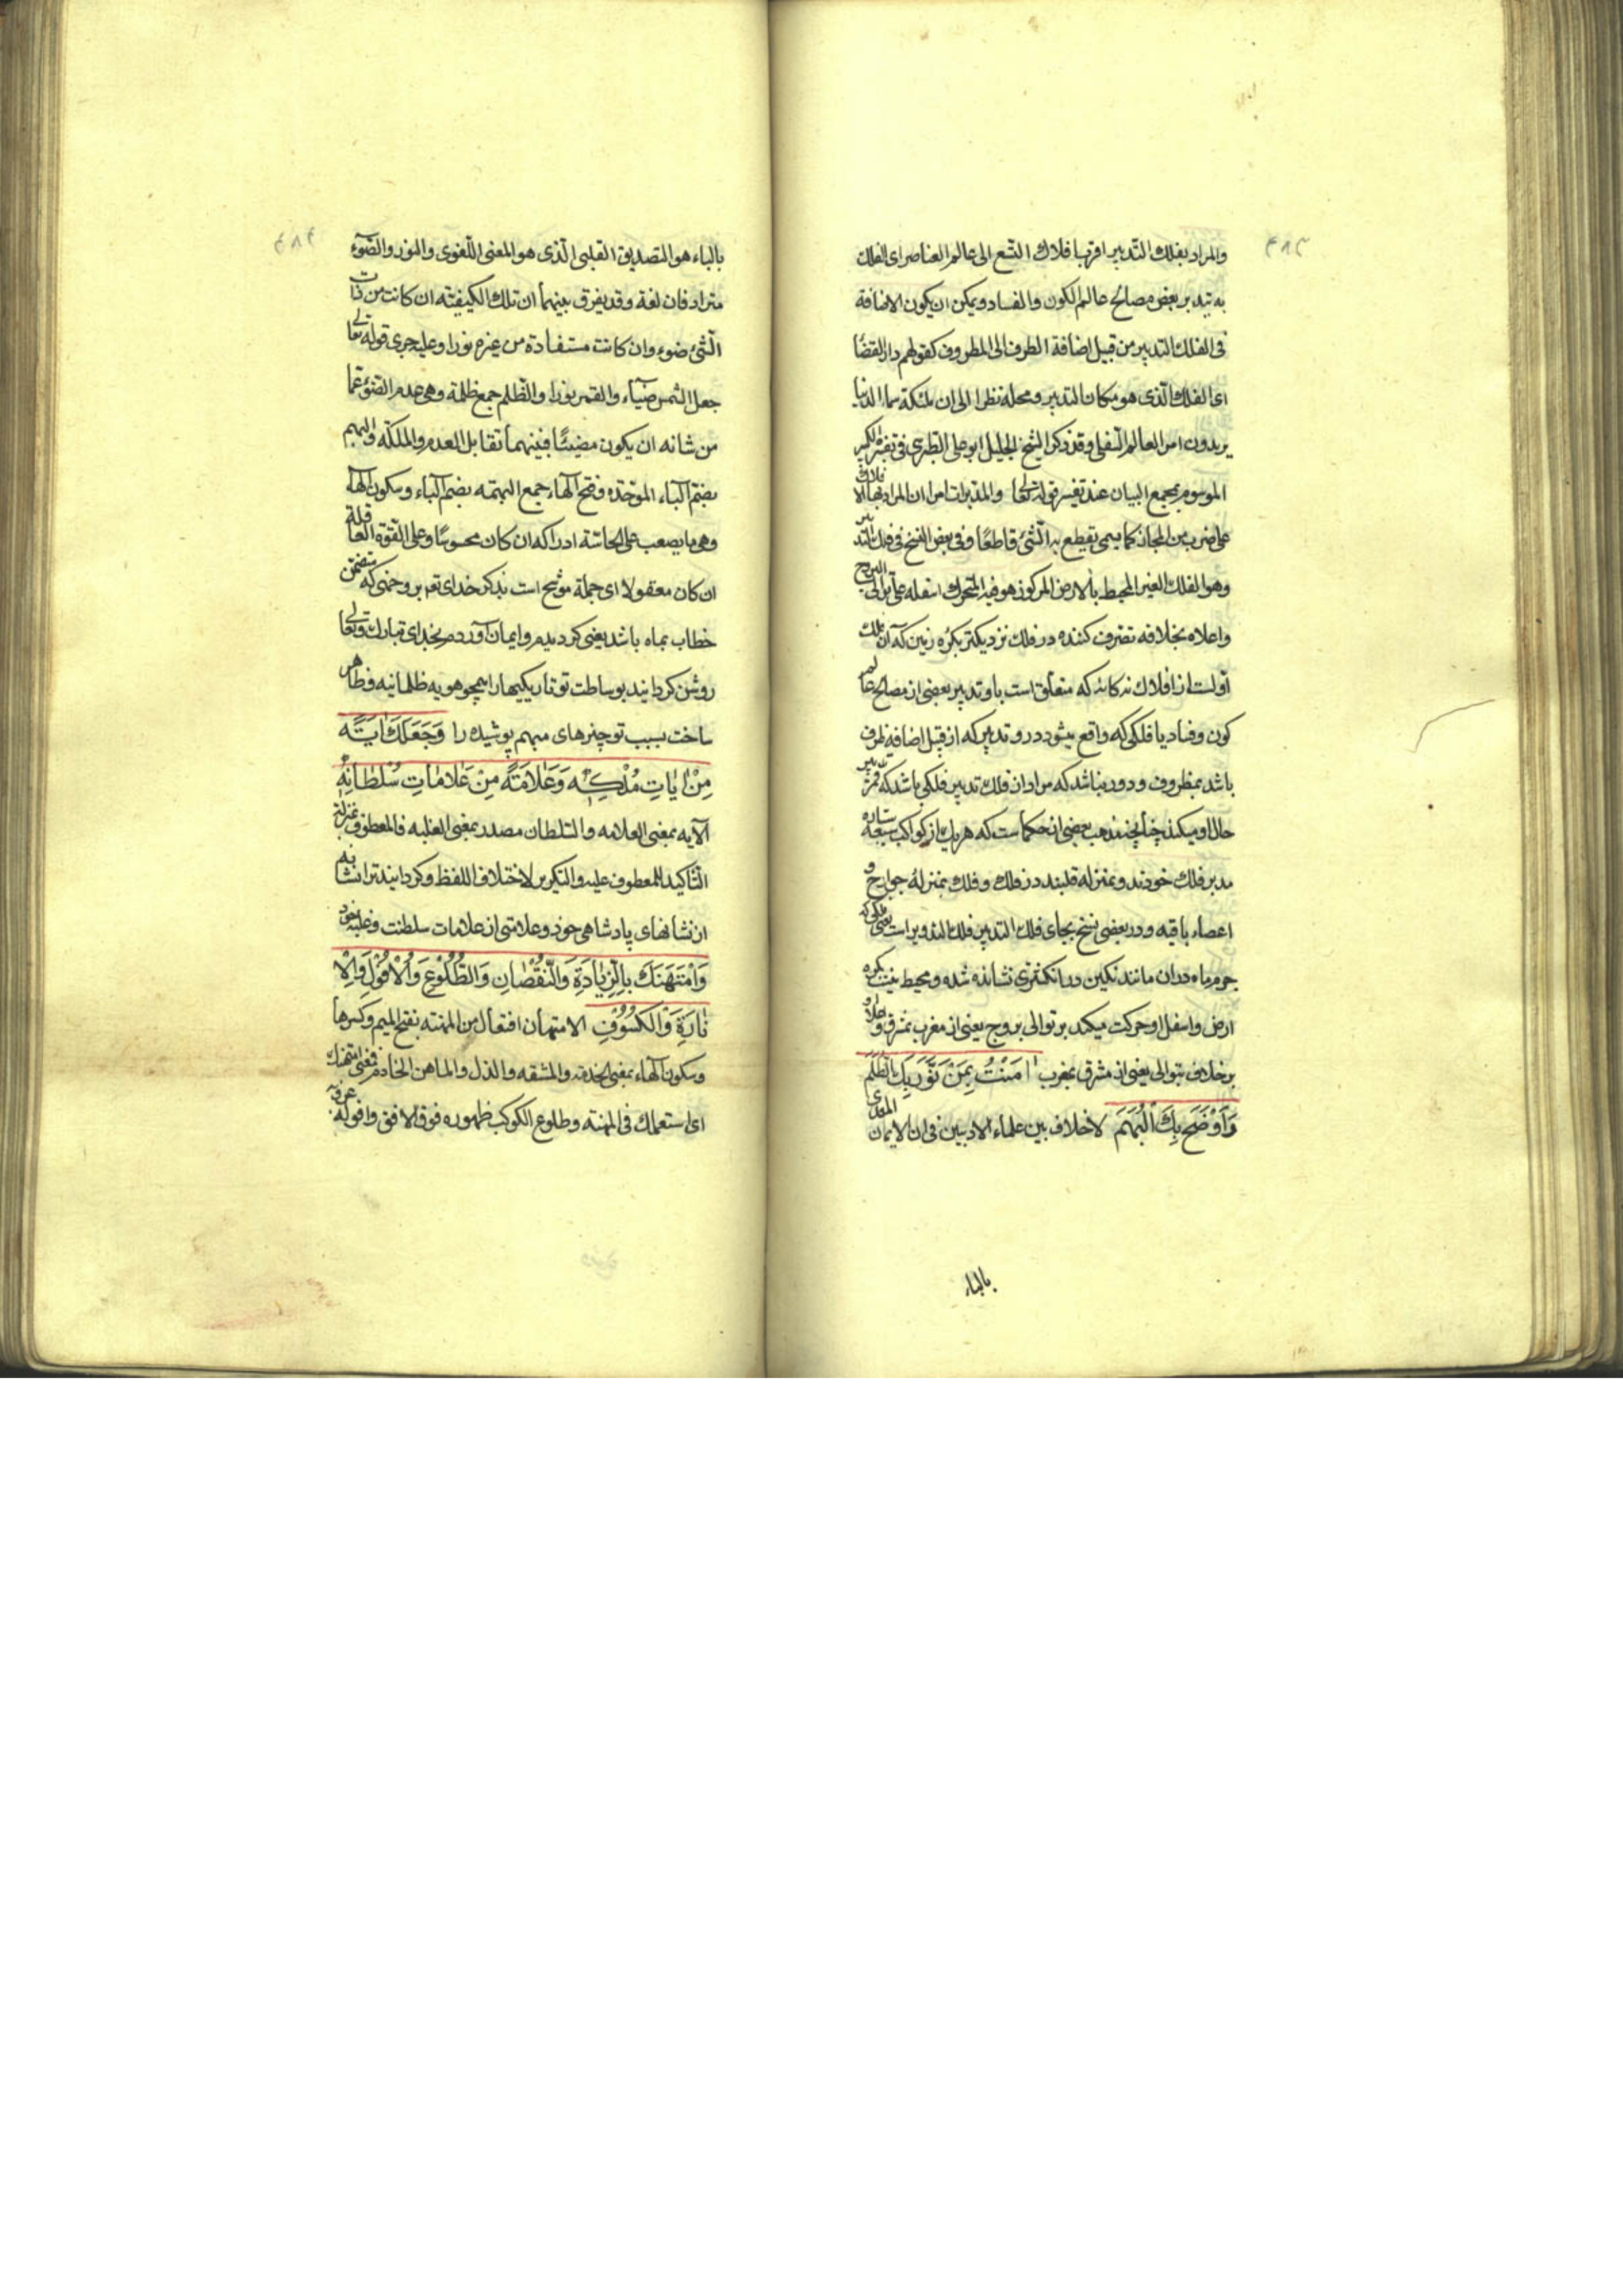 والمراد بفلك التدبير اقربها فلاك التسع الى عالم العناصر اى الفلك
به تدبير بعض مصالح عالم الكون والفساد ويمكن ان يكون الاضافة
فى الفلك التدبير من قبيل اضافة الظرف الى المظروف كقولهم دار القضا
اى الفلك الذى هو مكان التدبير ومحله نظرا الى ان ملئكة سماء الدنيا
يريدون امر العالم السفلى وقد ذكر الشيخ الجليل ابو على الطبرى فى تفسيره الكبير
الموسوم بمجمع البيان عند تفسير قوله تعالى والمدبرات امرا ان المراد بها الافلاك
على ضرب من المجاز كما يسمى ما يقطع به الشئ قاطعا وفى بعض النسخ فى فلك التدوير
وهو الفلك الغير المحيط بالارض المركوز هو فيه المتحرك اسفله على توالى البروج
واعلاه بخلافه تصرف كننده در فلك نزديكتر بكره زمين كه آن فلك
اولست از افلاك نه كانه كه متعلق است باو تدبير بعضى از مصالح عالم
كون وفساد يا فلكى كه واقع ميشود در و تدبير كه از قبيل اضافه ظرف
باشد بمظروف و دور نباشد كه مراد از فلك تدبير فلكى باشد كه تدبير
حال او ميكند چنانچه مذهب بعضى از حكماست كه هر يك از كواكب سبعه سياره
مدبر فلك خودند وبمنزله قلبند در فلك وفلك بمنزله جوارح و
اعضاء باقيه ودر بعضى نسخ بجاى فلك التدبير فلك التدوير است يعنى فلكى كه
جرم ماه در ان مانند نكين در انكشترى نشانده شده ومحيط نيست بكره
ارض واسفل او حركت ميكند بر توالى بروج يعنى از مغرب بمشرق واعلاى او
بر خلاف توالى يعنى از مشرق بمغرب اٰمَنْتُ بِمَنْ نَوَّرَ بِكَ الظُّلَمَ
وَاَوْضَحَ بِكَ الْبُهَمَ لا خلاف بين علماء الادبيين فى ان الايمان المعدى
بالباء
بالباء هو التصديق القلبى الذى هو المعنى اللغوى والنور والضوء
مترادفان لغة وقد يفرق بينهما ان تلك الكيفيته ان كانت من ذات
الشئ ضوء وان كانت مستفادة من غيره نورا وعليه جرى قوله تعالى
جعل الشمس ضياء والقمر نورا والظلم جمع ظلمة وهى عدم الضوء عما
من شانه ان يكون مضيئا فبينهما تقابل العدم والملكة والبهم
بضم الباء الموحده وفتح الهاء جمع البهمه بضم الباء وسكون الهاء
وهى ما يصعب على الحاسة ادراكه ان كان محسوسا وعلى القوة العاقلة
ان كان معقولا اى جملة موشح است بذكر خداى تعم بر وجهى كه متضمن
خطاب بماه باشد يعنى كرديدم وايمان آوردم بخداى تبارك وتعالى
روشن كردانيد بوساطت تو تاريكيها را همچو هويه ظلمانيه وظاهر
ساخت بسبب تو چيزهاى مبهم پوشيده را وَجَعَلَكَ اٰيَةً
مِنْ اٰيَاتِ مُلْكِهِ وَعَلَامَةً مِنْ عَلَامَاتِ سُلْطَانِهِ
الآيه بمعنى العلامه والسلطان مصدر بمعنى الغلبه فالمعطوف بمنزلة
التاكيد للمعطوف عليه والتكرير لاختلاف اللفظ وكردانيد ترا نشانه
از نشانهاى پادشاهى خود وعلامتى از علامات سلطنت وغلبه خود
وَامْتَهَنَكَ بِالزِّيَادَةِ وَالنُّقْصَانِ وَالطُّلُوْعِ وَالْاُفُوْلِ وَالْاِ
نَارَةِ وَالْكُسُوْفِ الامتهان افتعال من المهنته بفتح الميم وكسرها
وسكون الهاء بمعنى الخدمه والمشقه والذل والماهن الخادم فمعنى امتهنك
اى استعملك فى المهنته وطلوع الكوكب ظهوره فوق الافق وافوله غروبه